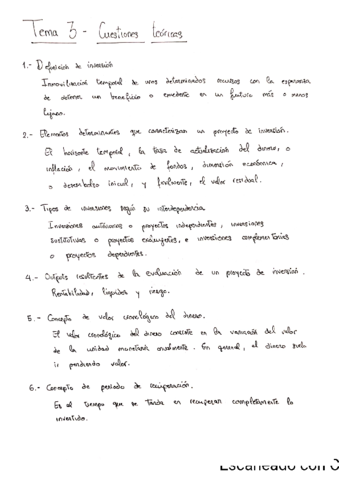 Tema 3 - Cuestiones teóricas
1.- Definición de inversión
Inmovilización temporal de unos determinados recursos con la esperanza
de obtener un beneficio o excedente en un futuro más o menos
lejano.
2.- Elementos determinantes que caracterizan un proyecto de inversión.
El horizonte temporal, la tasa de actualización del dinero, o
inflación, el movimiento de fondos, dimensión económica,
o desembolso inicial, y finalmente, el valor residual.
3.- Tipos de inversiones según su interdependencia
Inversiones autónomas o proyectos independientes, inversiones
sustitutivas o proyectos excluyentes, e inversiones complementarias
o proyectos dependientes.
4.- Outputs resultantes de la evaluación de un proyecto de inversión.
Rentabilidad, liquidez y riesgo.
5.- Concepto de valor cronológico del dinero.
El valor cronológico del dinero consiste en la variación del valor
de la unidad monetaria anualmente. En general, el dinero suele
ir perdiendo valor.
6.- Concepto de periodo de recuperación.
Es el tiempo que se tarda en recuperar completamente lo
invertido.
Escaneado con C